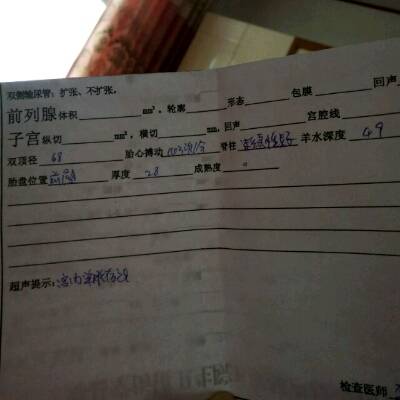 双侧输尿管：扩张、不扩张。
前列腺体积 mm³，轮廓 形态 包膜 回声
子宫纵切 mm³，横切 mm，回声 宫腔线
双顶径 68 胎心搏动 次/分 脊柱 连续性好 羊水深度 49
胎盘位置 前壁 厚度 28 成熟度 0
超声提示：宫内单胎存活
检查医师